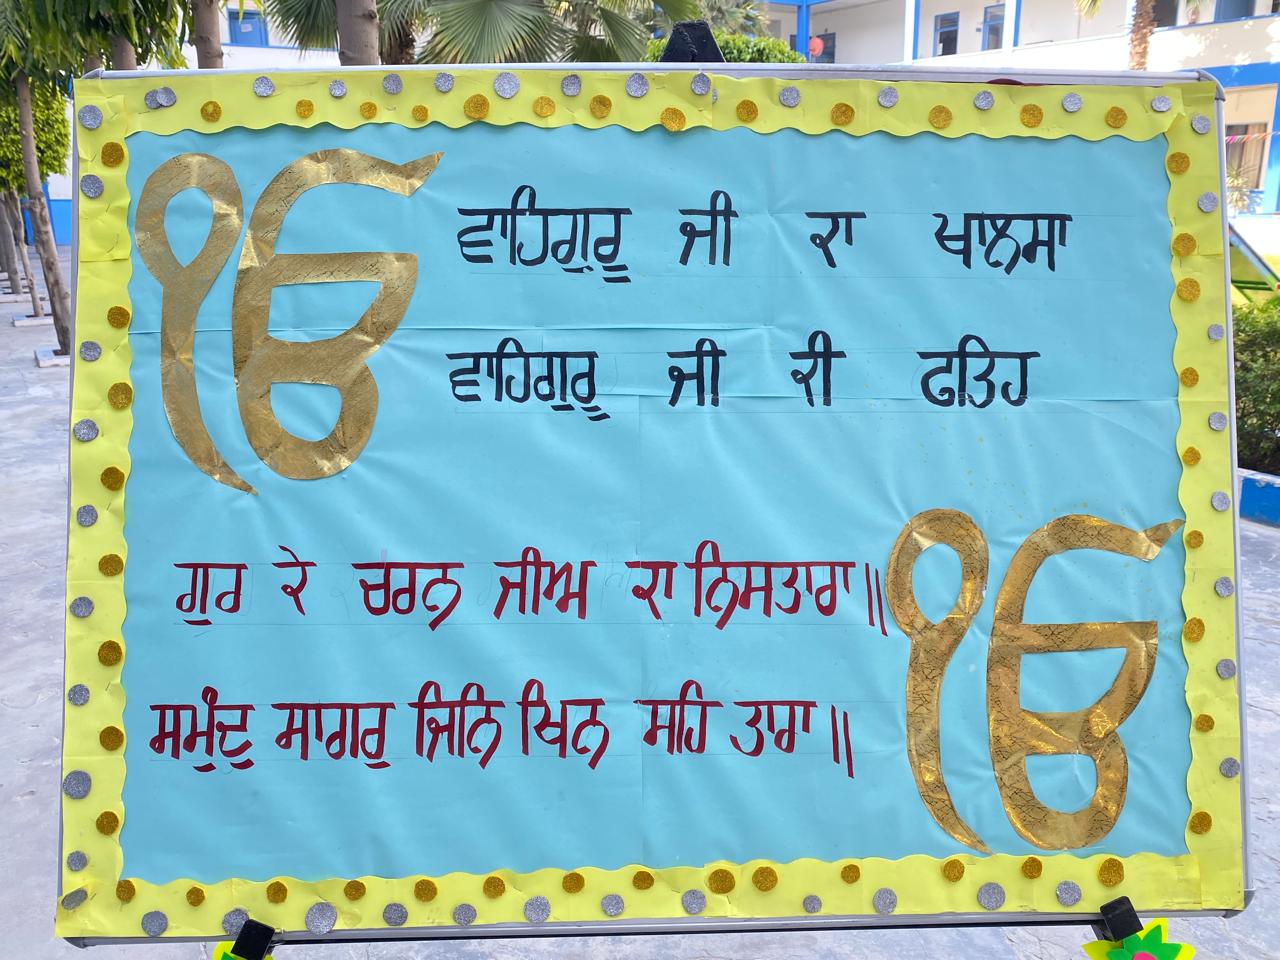 ੴ
ਵਾਹਿਗੁਰੂ ਜੀ ਕਾ ਖਾਲਸਾ
ਵਾਹਿਗੁਰੂ ਜੀ ਕੀ ਫਤਿਹ
ਗੁਰ ਕੇ ਚਰਨ ਜੀਅ ਕਾ ਨਿਸਤਾਰਾ॥
ਸਮੁੰਦੁ ਸਾਗਰੁ ਜਿਨਿ ਖਿਨ ਮਹਿ ਤਾਰਾ॥
ੴ